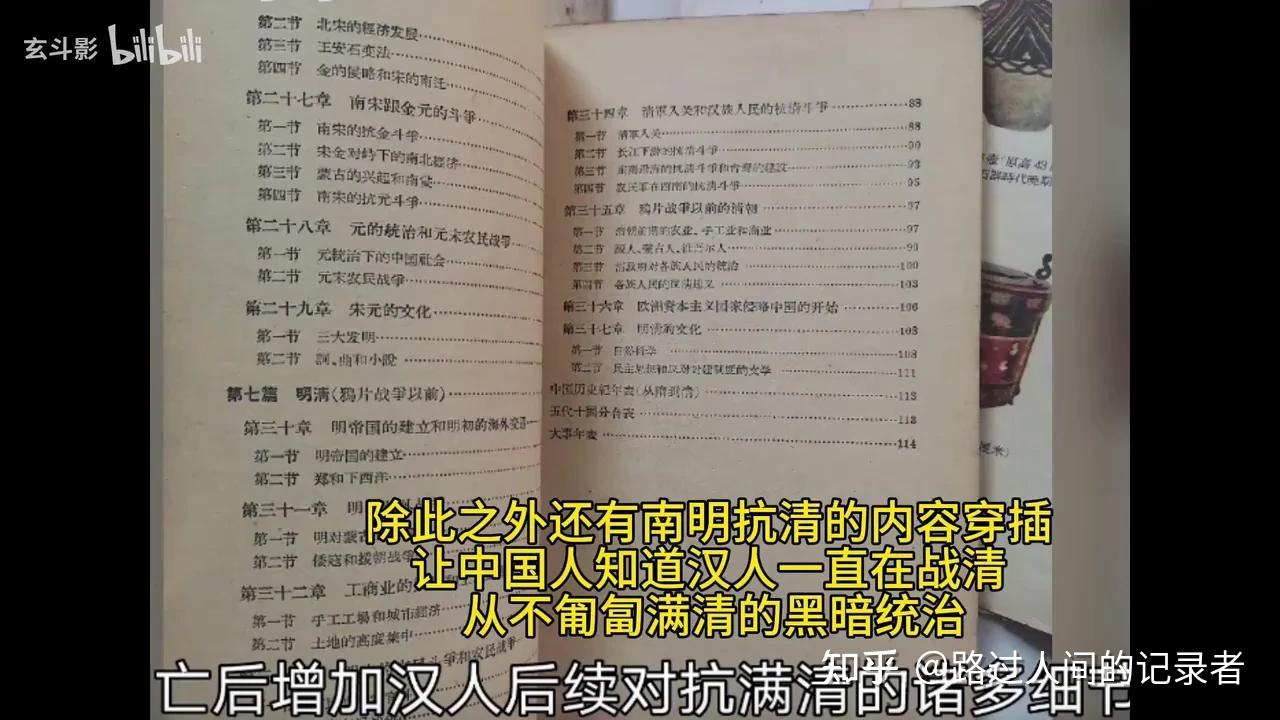 玄斗影 bilibili
第二节 北宋的經济发展
第三节 王安石变法
第四节 金的侵略和宋的南迁
第二十七章 南宋跟金元的斗爭
第一节 南宋的抗金斗爭
第二节 宋金对峙下的南北經济
第三节 蒙古的兴起和南侵
第四节 南宋的抗元斗爭
第二十八章 元的統治和元末农民战爭
第一节 元統治下的中国社会
第二节 元末农民战爭
第二十九章 宋元的文化
第一节 三大发明
第二节 詞、曲和小說
第七篇 明清(鴉片战爭以前)
第三十章 明帝国的建立和明初的海外交通
第一节 明帝国的建立
第二节 郑和下西洋
第三十一章 明
第一节 明对蒙古
第二节 倭寇和援朝战爭
第三十二章 工商业的
第一节 手工工場和城市經济
第二节 土地的高度集中
斗爭和农民战爭
第三十四章 清軍入关和汉族人民的抗清斗爭 88
第一节 清軍入关 88
第二节 长江下游的抗清斗爭 90
第三节 东南沿海的抗清斗爭和台灣的建設 93
第四节 农民軍在西南的抗清斗爭 95
第三十五章 鴉片战爭以前的清朝 97
第一节 清朝前期的农业、手工业和商业 97
第二节 藏人、蒙古人、維吾尔人 99
第三节 清政府对各族人民的統治 100
第四节 各族人民的反清起义 103
第三十六章 欧洲資本主义国家侵略中国的开始 106
第三十七章 明清的文化 108
第一节 自然科学 108
第二节 民主思想和反对封建制度的文学 111
中国历史紀年表(从隋到清) 113
五代十国分合表 113
大事年表 114
除此之外还有南明抗清的内容穿插
让中国人知道汉人一直在战清
从不匍匐满清的黑暗统治
知乎 @路过人间的记录者
亡后增加汉人后续对抗满清的诸多细节